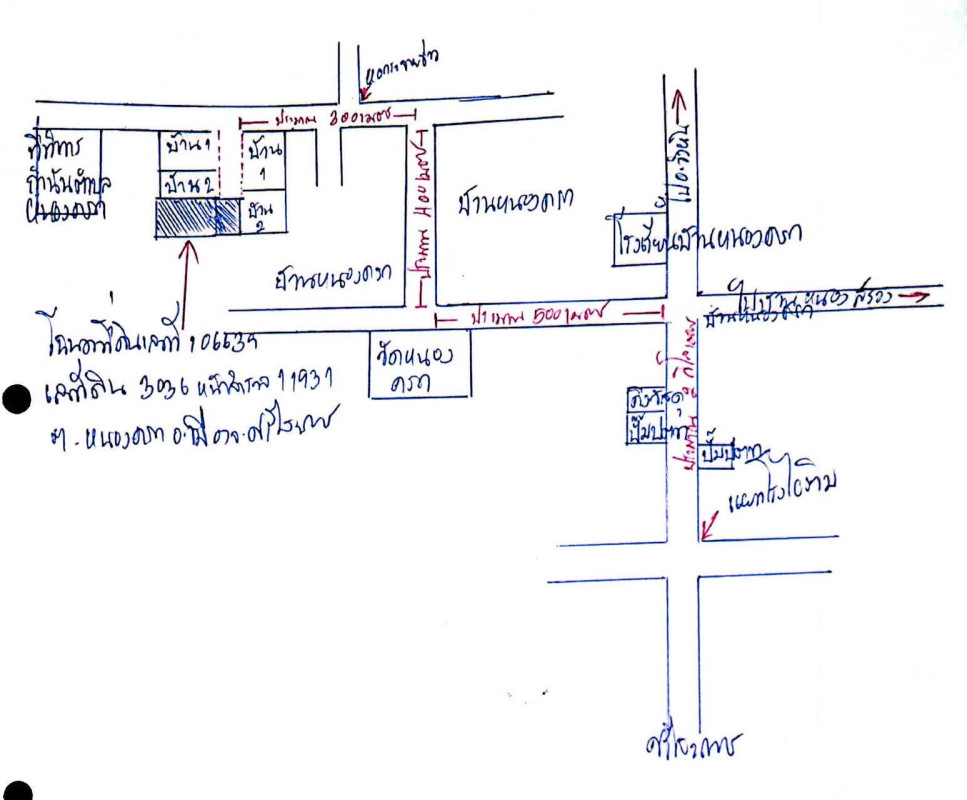 หอกระจายข่าว
ประมาณ 300 เมตร
ที่ทำการ
กำนันตำบล
หนองครก
บ้าน 1
บ้าน 2
บ้าน
1
บ้าน
2
ประมาณ 400 เมตร
บ้านหนองครก
บ้านหนองครก
โรงเรียนบ้านหนองครก
ไป อ.วังหิน
ไปบ้านหนองสำรอง
บ้านหนองครก
ประมาณ 500 เมตร
วัดหนอง
ครก
โฉนดที่ดินเลขที่
เลขที่ดิน 3036 หน้าสำรวจ 11931
ต.หนองครก อ.เมือง จ.ศรีสะเกษ
ประมาณ 2 กิโลเมตร
ปั๊มปตท
ปั๊มปตท
ศรีสะเกษ